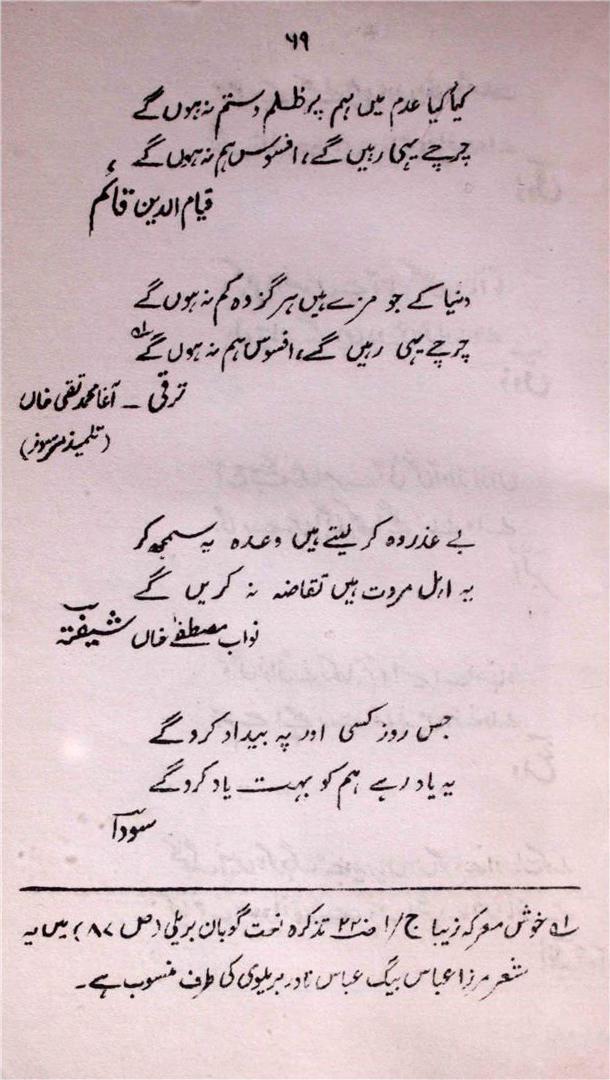 ۶۹
کیا کیا عدم میں ہم پر ظلم و ستم نہ ہوں گے
چرچے یہی رہیں گے، افسوس ہم نہ ہوں گے
قیام الدین قائم
دنیا کے جو مزے ہیں ہرگز وہ کم نہ ہوں گے
چرچے یہی رہیں گے، افسوس ہم نہ ہوں گے ؎۱
ترقی ۔ آغا محمد تقی خاں
(تلمیذ میر سوز)
بے عذر وہ کر لیتے ہیں وعدہ یہ سمجھ کر
یہ اہل مروت ہیں تقاضہ نہ کریں گے
نواب مصطفےٰ خاں شیفتہ
جس روز کسی اور پہ بیداد کرو گے
یہ یاد رہے ہم کو بہت یاد کرو گے
سودا
؎۱ خوش معرکہ زیبا ج/۱ ص۲۲ تذکرہ نعت گویان بریلی (ص ۸۷) میں یہ
شعر مرزا عباس بیگ عباس نادر بریلوی کی طرف منسوب ہے۔